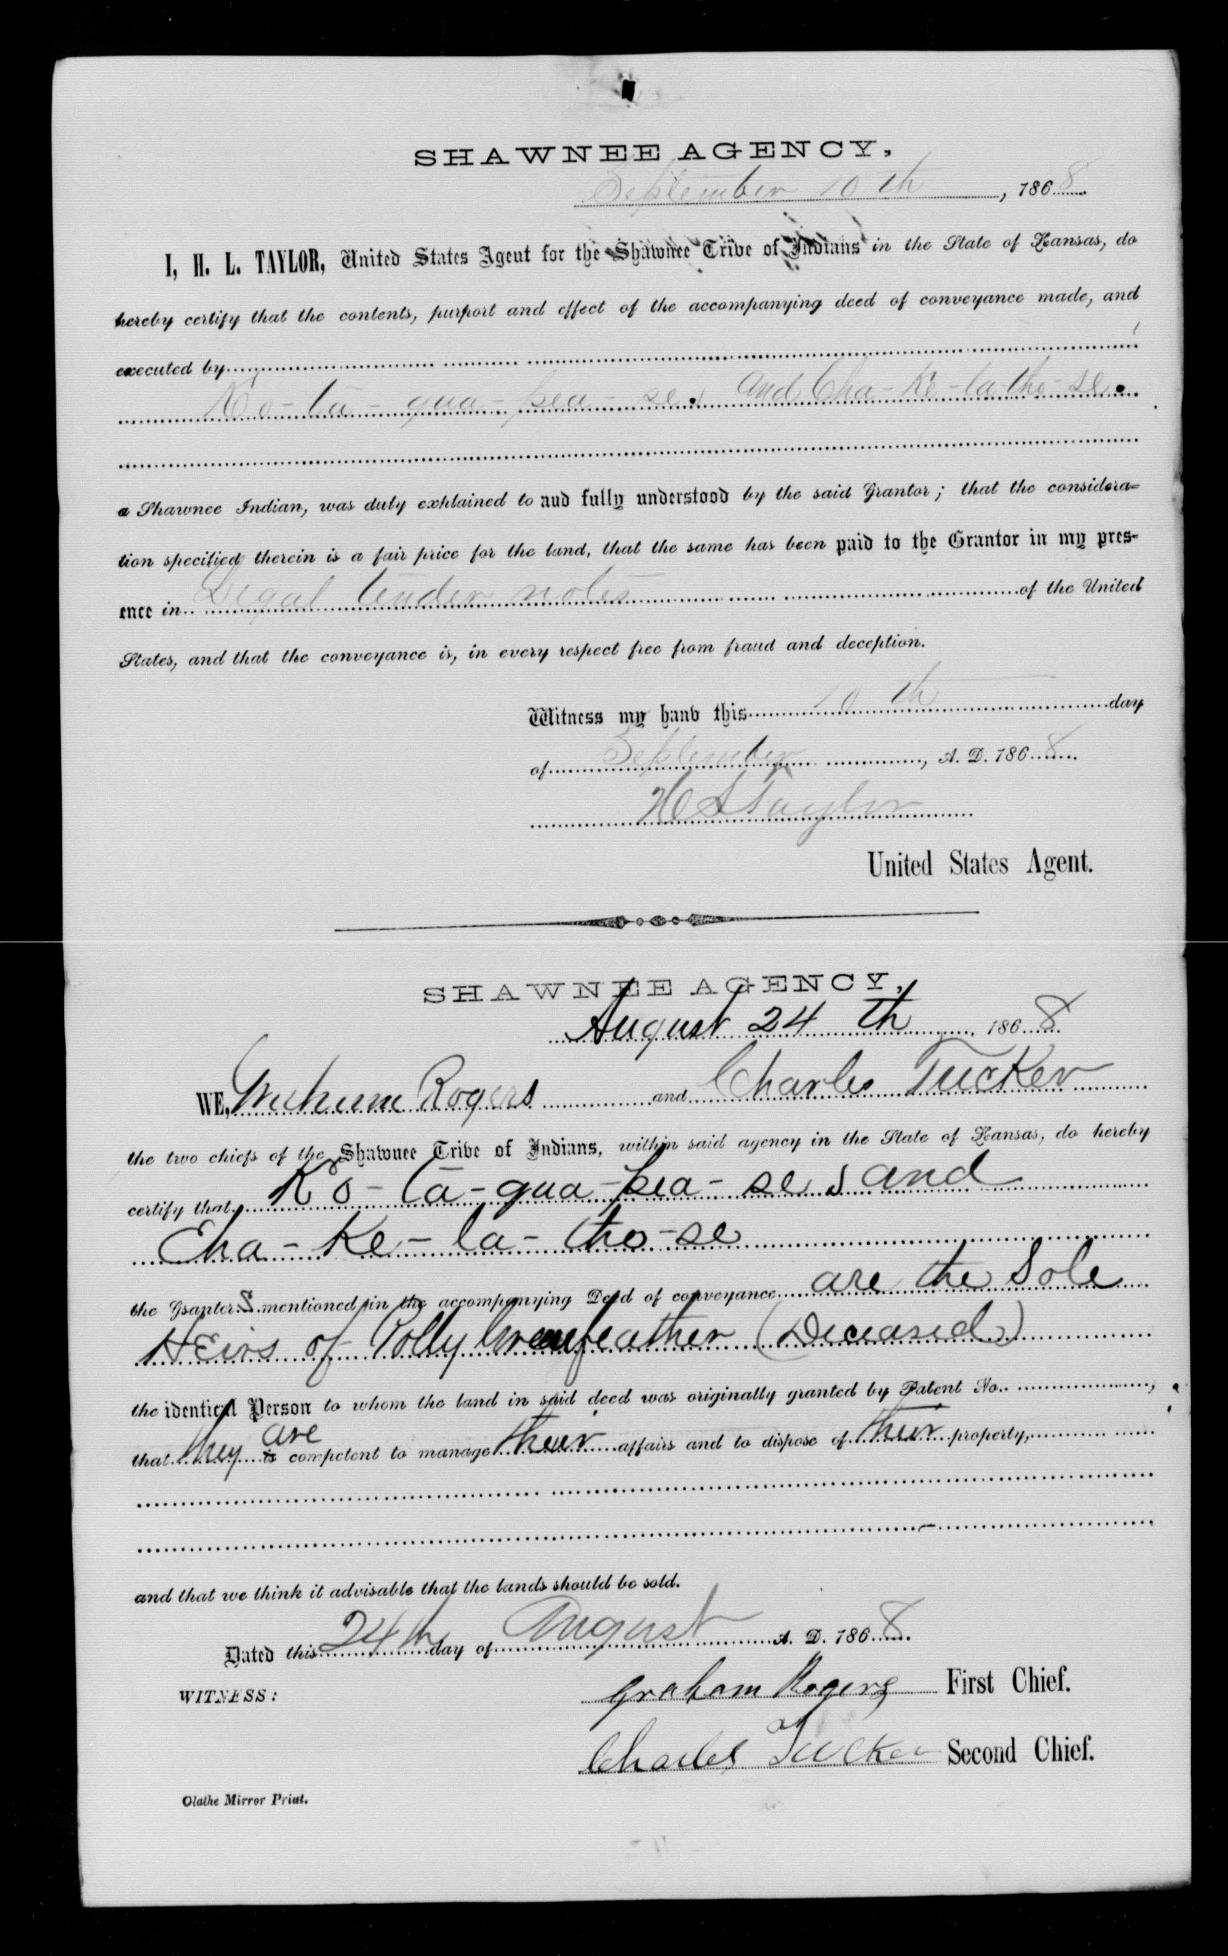 SHAWNEE AGENCY,
September 10th, 1868
I, H. L. TAYLOR, United States Agent for the Shawnee Tribe of Indians in the State of Kansas, do
hereby certify that the contents, purport and effect of the accompanying deed of conveyance made, and
executed by
Ko-ta-qua-pea-se. and Cha-Ke-la-tho-se.
a Shawnee Indian, was duly explained to and fully understood by the said Grantor; that the considera-
tion specified therein is a fair price for the land, that the same has been paid to the Grantor in my pres-
ence in Legal tender notes of the United
States, and that the conveyance is, in every respect free from fraud and deception.
Witness my hand this 10th day
of September, A. D. 1868
H L Taylor
United States Agent.
SHAWNEE AGENCY,
August 24th 1868
WE, Rogers and Charles Tucker
the two chiefs of the Shawnee Tribe of Indians, within said agency in the State of Kansas, do hereby
certify that Ko-ta-qua-pea-se and
Cha-Ke-la-tho-se
the Granters mentioned in the accompanying Deed of conveyance are the Sole
Heirs of Polly Greenfeather (Deceased)
the identical Person to whom the land in said deed was originally granted by Patent No.,
that they are is competent to manage their affairs and to dispose of their property,
and that we think it advisable that the lands should be sold.
Dated this 24th day of August A. D. 1868
WITNESS:
Graham Rogers First Chief.
Charles Tucker Second Chief.
Olathe Mirror Print.